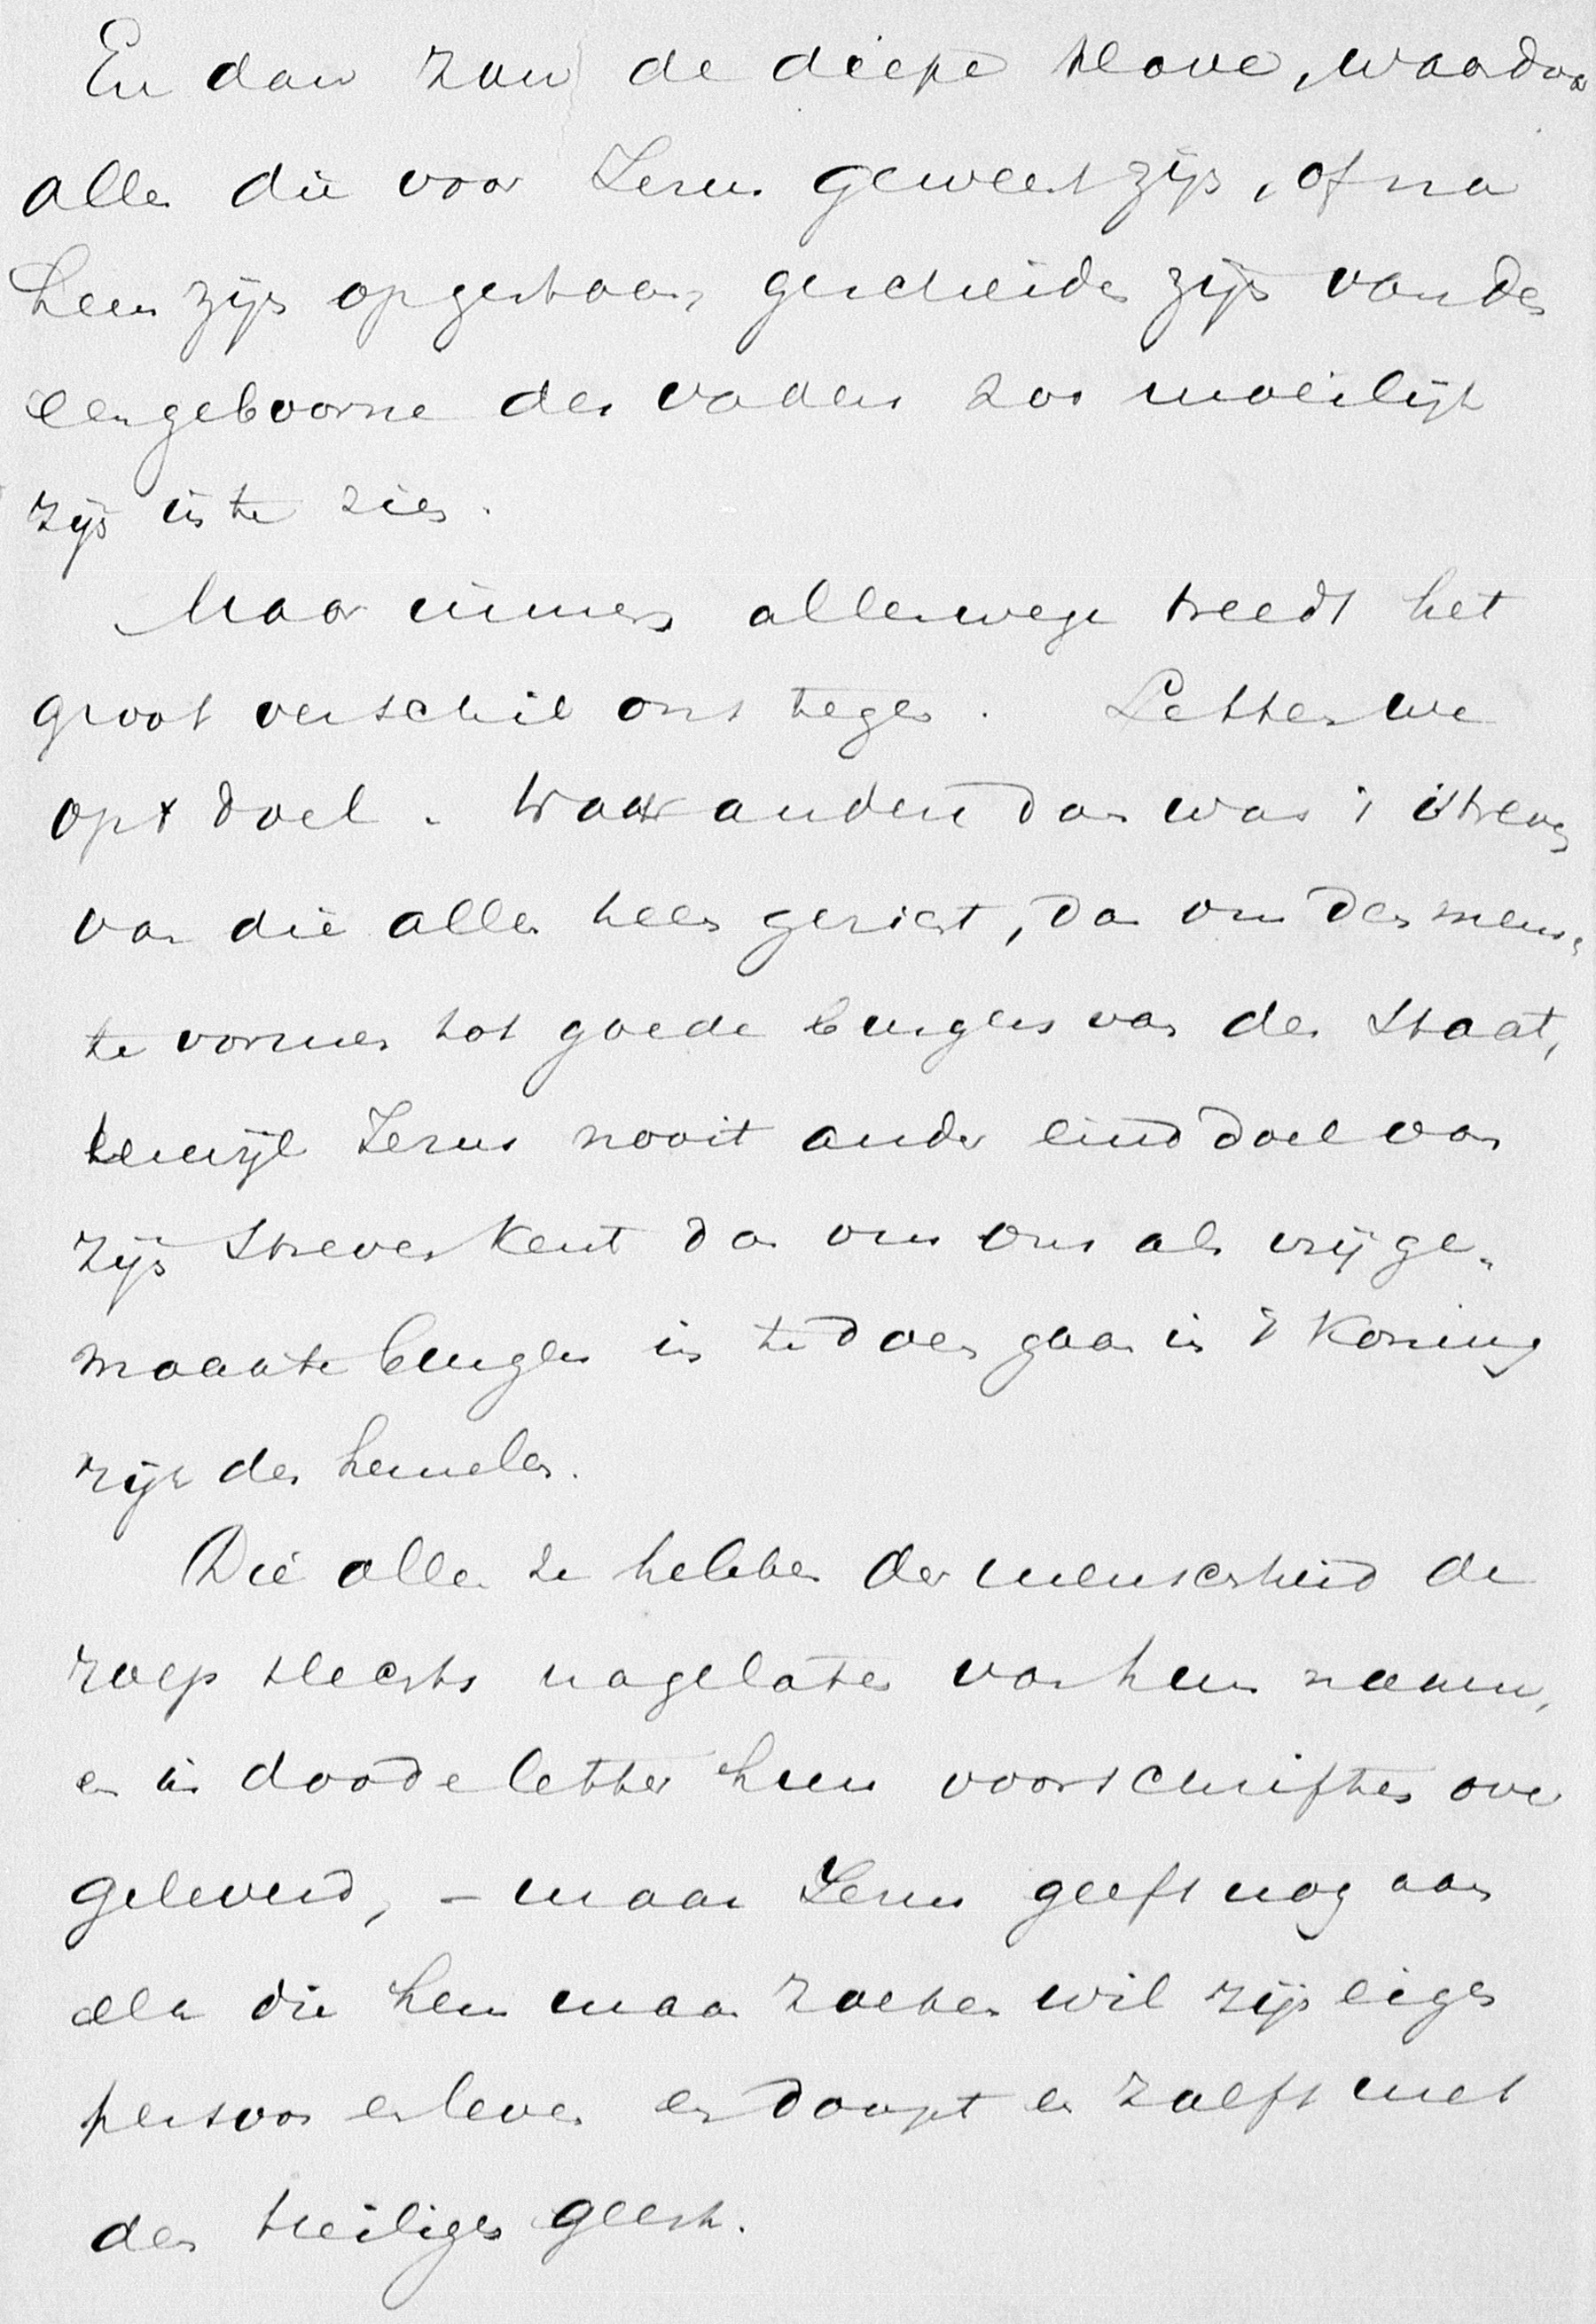 En dan zou de diepe klove, waardoor
allen die voor Jezus geweest zijn, of na
hem zijn opgestaan, gescheiden zijn van den
eengeboorne des vaders zoo moeilijk
zijn in te zien.
Maar immers allerwege treedt het
groot verschil ons tegen. Letten we
op 't doel. Wat anders dan was 't streven
van die allen heen gericht, dan om den mensch
te vormen tot goede burgers van den Staat,
terwijl Jezus nooit ander einddoel van
zijn streven kent dan om ons als vrijge-
maakte burgers in te doen gaan in 't Koning
rijk der hemelen.
Die allen ze hebben der menschheid de
roep slechts nagelaten van hun namen,
en in doode letter hun voorschriften over
geleverd, - maar Jezus geeft nog aan
elk die hem maar zoeken wil zijn eigen
persoon en leven en doopt en zalft met
den heiligen geest.